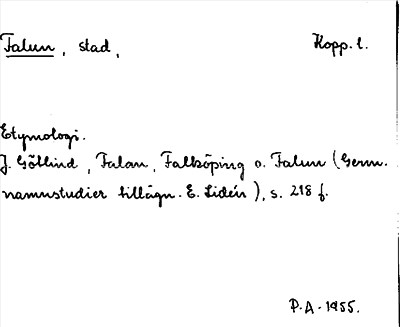 Falun, stad,
Kopp. l.
Etymologi.
J. Götlind, Falan, Falköping o. Falun (Germ.
namnstudier tillägn. E. Lidén), s. 218 f.
P.A. 1955.